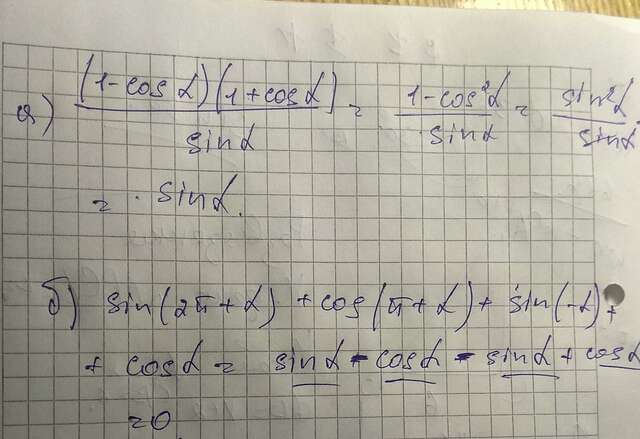 а) (1-cos α)(1+cos α) / sin α = 1-cos²α / sin α = sin²α / sin α
= sin α.
б) sin(2π+α) + cos(π+α) + sin(-α) +
+ cos α = sin α - cos α - sin α + cos α
=0.